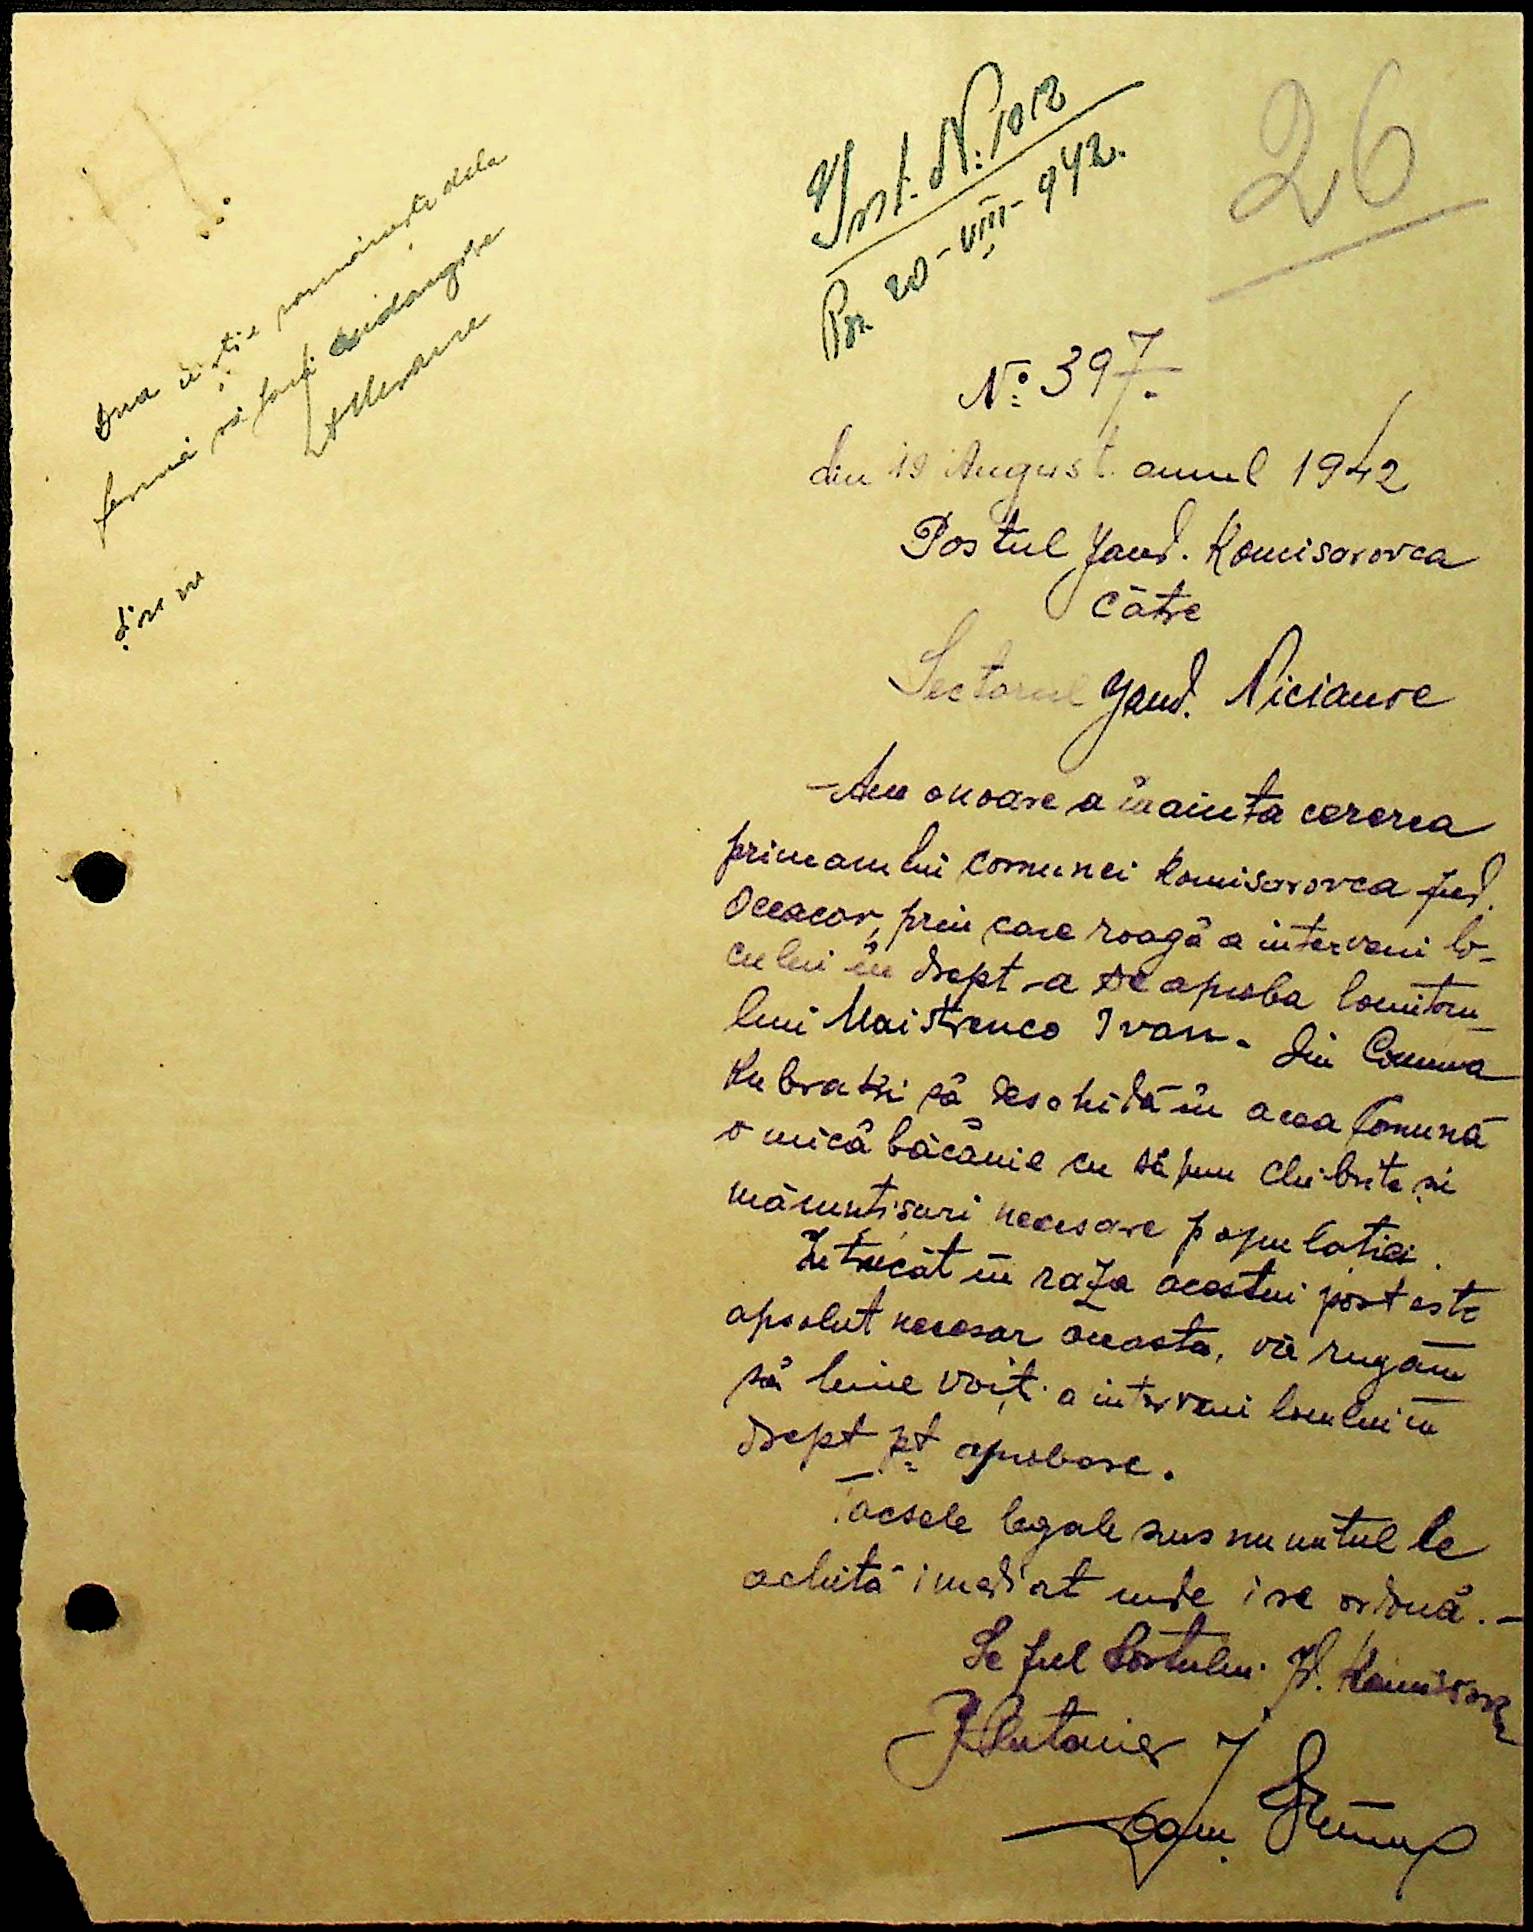 Inst. N: 1012
20-VIII-942.
26
Nº 397.
din 19 August anul 1942
Postul Jand. Komisarovca
Către
Sectorul Jand. Niciaure
Am onoare a înainta cererea
primarului comunei Komisarovca Jud.
Oceacov, prin care roagă a interveni lo-
cului în drept-a se aproba locuitoru-
lui Maistrenco Ivan. din Comuna
Kubratki să deschidă în acea Comună
o mică băcănie cu săpun Chibrite și
mărunțișuri necesare populației.
Întrucât în raza acestui post este
apsolut necesar aceasta, vă rugăm
să bine voiți a interveni locului în
drept pt aprobare.
Tacsele legale sus numitul le
achită imediat unde i se ordonă.-
Șeful Postului Jd. Komisarov
Plutonier